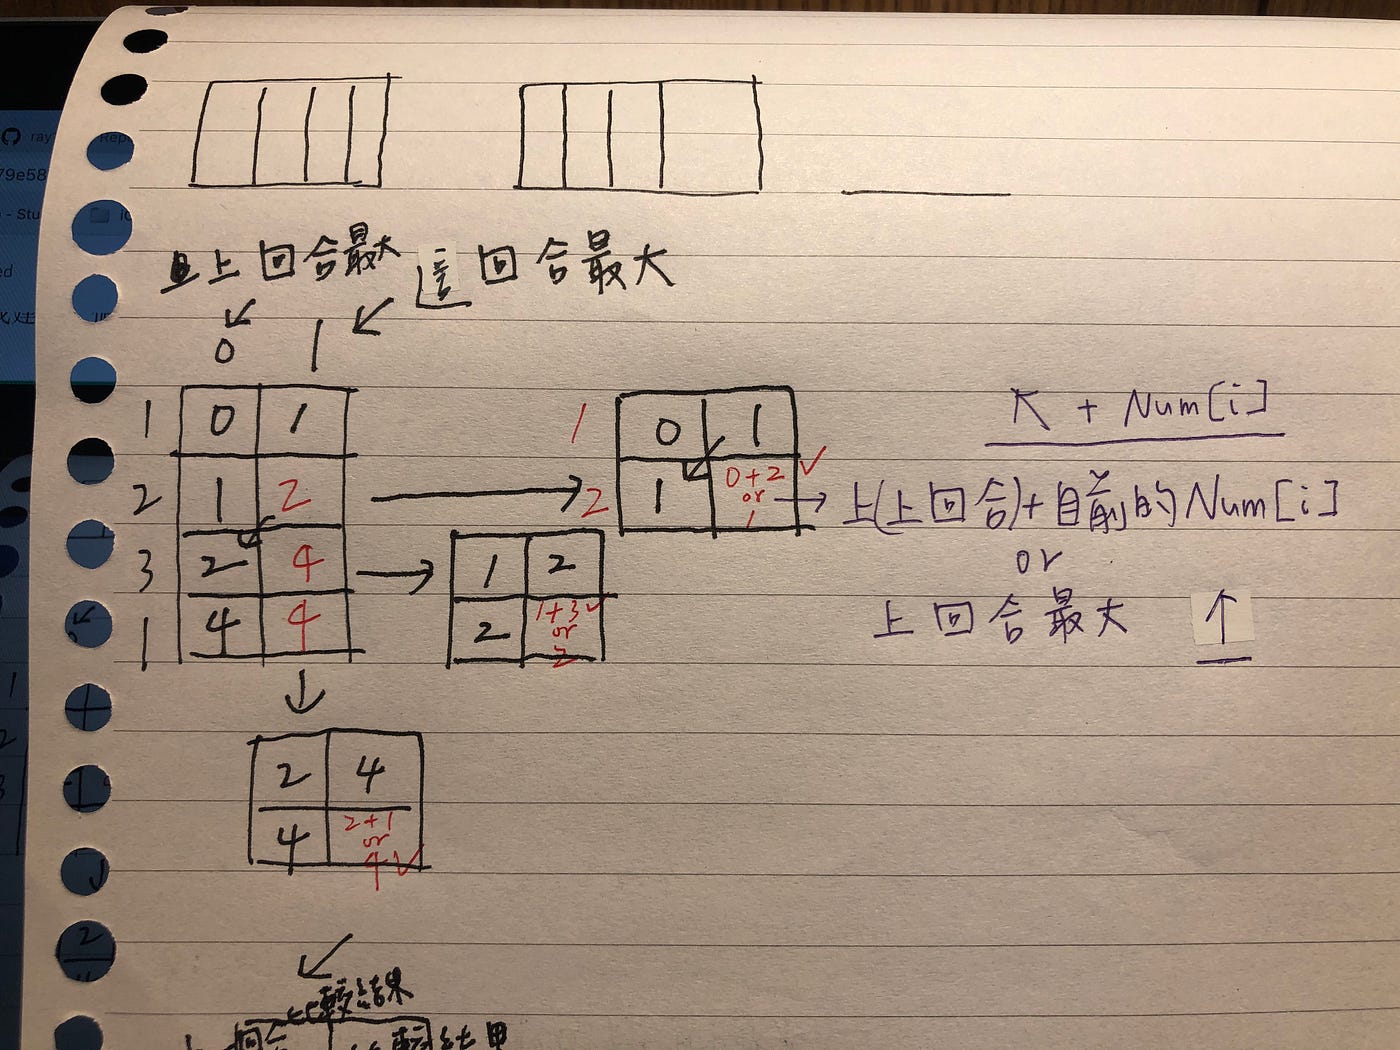 上回合最大 這回合最大
0 1
1 0 1
2 1 2
3 2 4
1 4 4
1 0 1
2 1 0+2 ✓
or
1
1 2
2 1+3 ✓
or
2
2 4
4 2+1
or
4 ✓
↖ + Num[i]
上(上回合)+目前的Num[i]
or
上回合最大 ↑
比較結果
較結果
ray
79e58
- Stu
ed